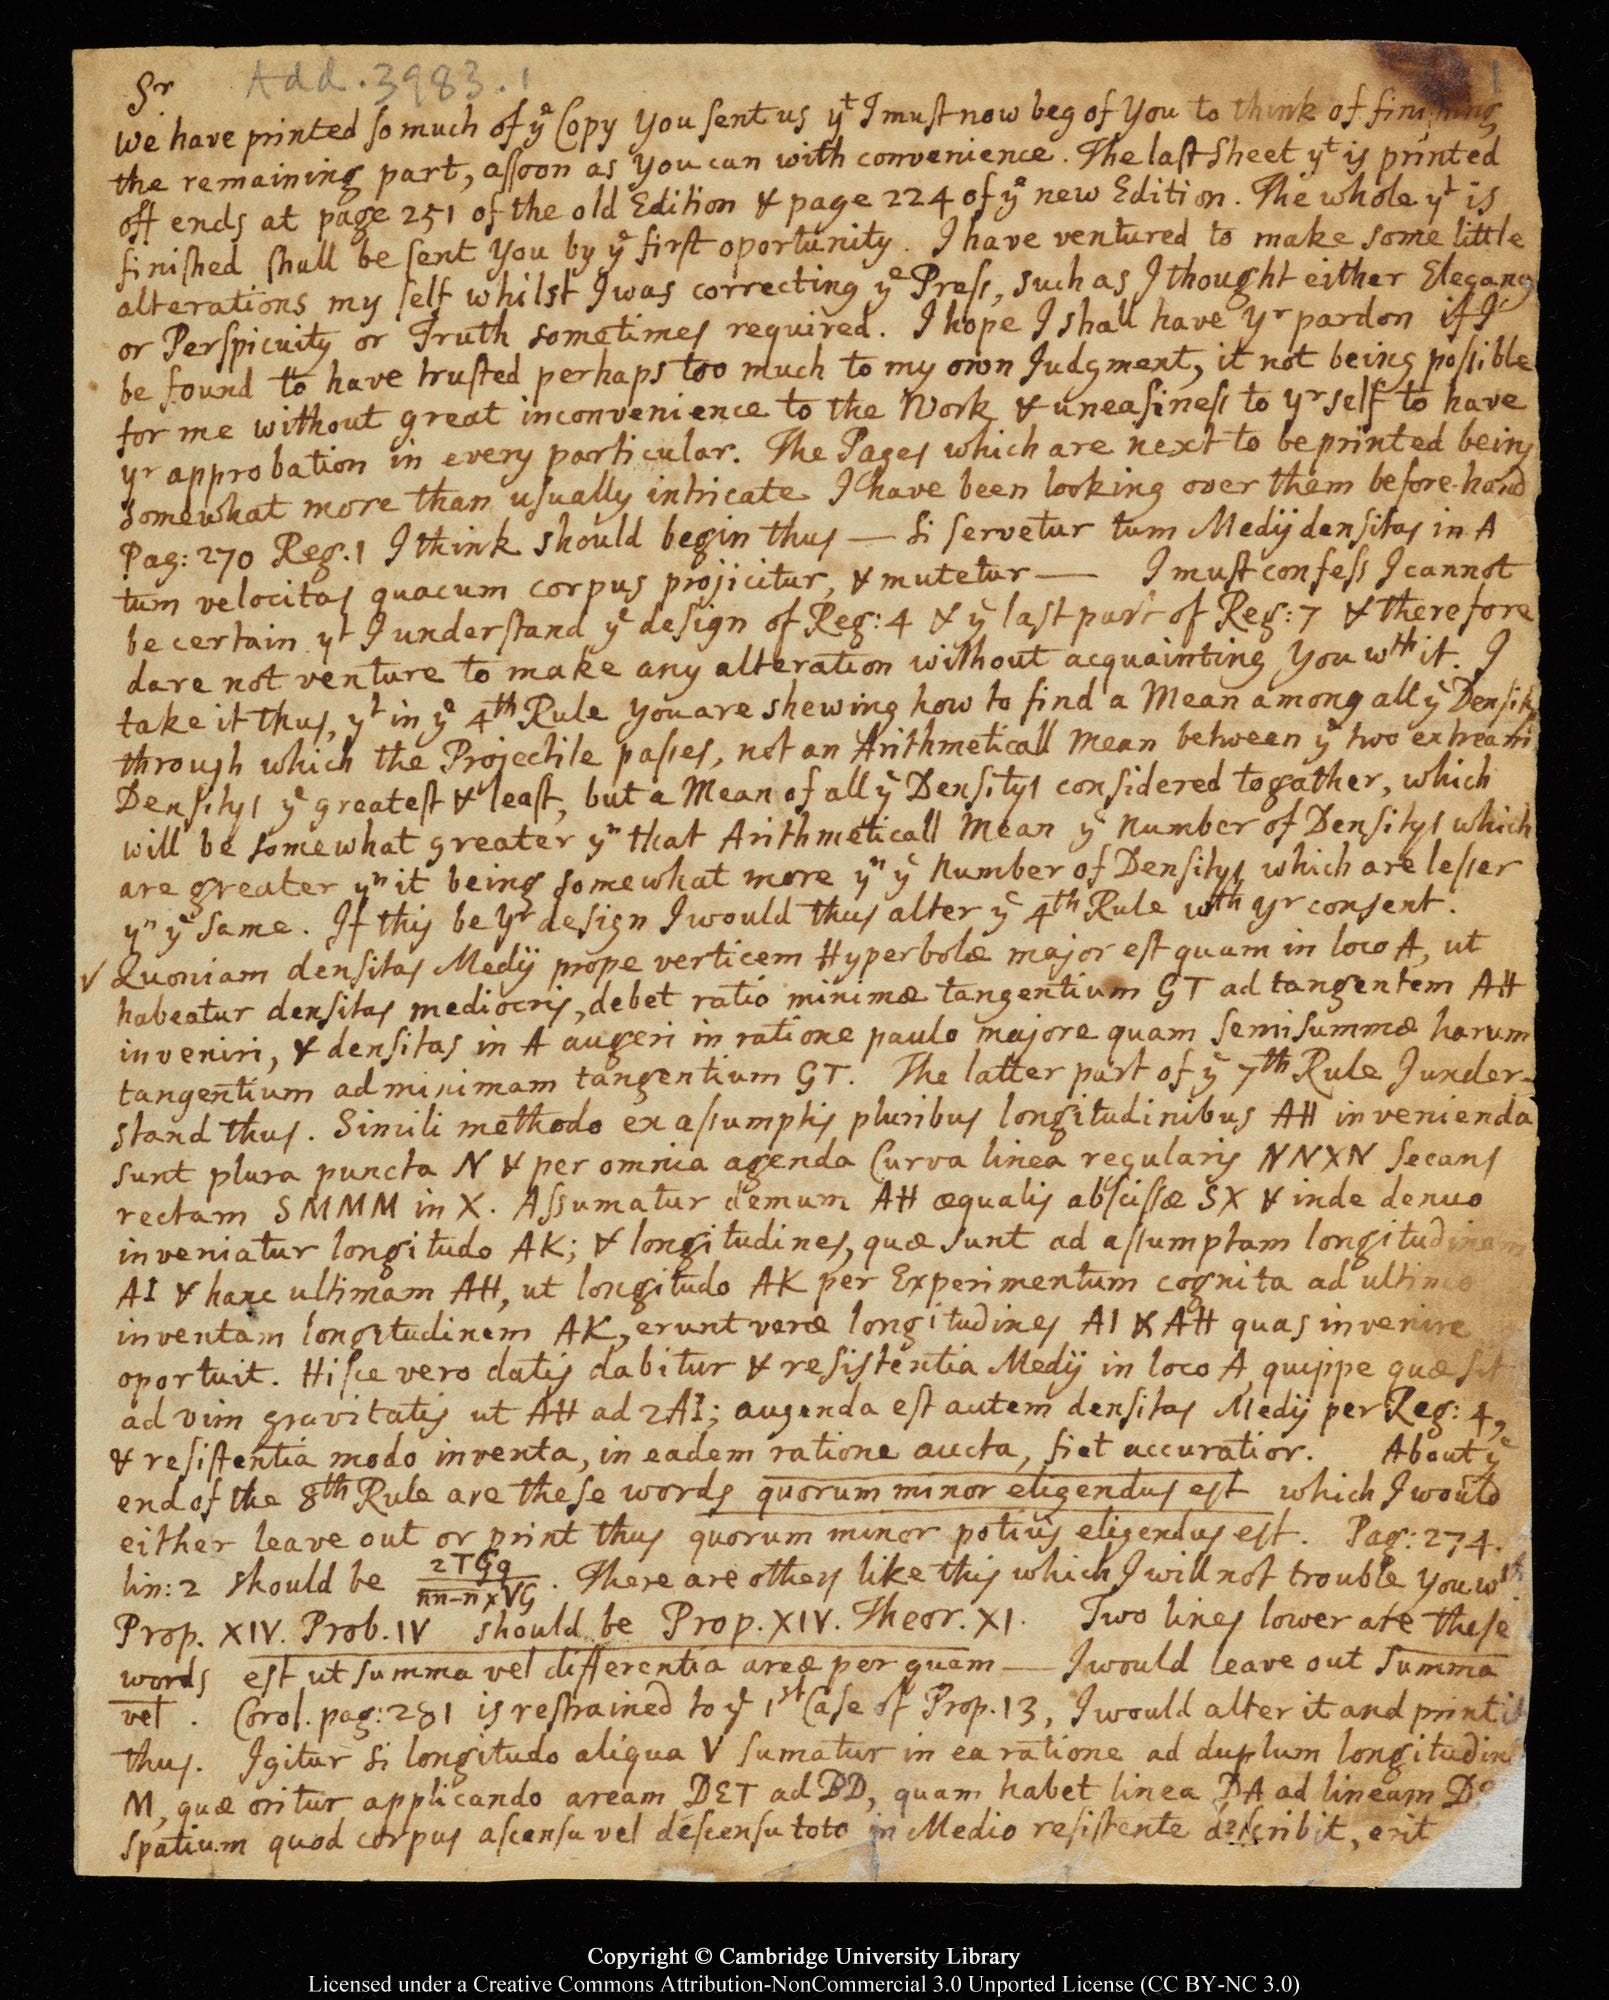 Sr Add.3983.1 1
We have printed so much of ye Copy You sent us yt I must now beg of You to think of finishing
the remaining part, assoon as You can with convenience. The last sheet yt is printed
off ends at page 251 of the old Edition & page 224 of ye new Edition. The whole yt is
finished shall be sent You by ye first oportunity. I have ventured to make some little
alterations my self whilst I was correcting ye Press, such as I thought either Elegancy
or Perspicuity or Truth sometimes required. I hope I shall have Yr pardon if I
be found to have trusted perhaps too much to my own Judgment, it not being possible
for me without great inconvenience to the Work & uneasiness to Yr self to have
Yr approbation in every particular. The Pages which are next to be printed being
somewhat more than usually intricate I have been looking over them before-hand
Pag: 270 Reg.1 I think should begin thus — Si servetur tum Medij densitas in A
tum velocitas quacum corpus projicitur, & mutetur — I must confess I cannot
be certain yt I understand ye design of Reg: 4 & ye last part of Reg: 7 & therefore
dare not venture to make any alteration without acquainting You wth it. I
take it thus, yt in ye 4th Rule You are shewing how to find a Mean among all ye Densitys
through which the Projectile passes, not an Arithmeticall Mean between ye two extream
Densitys ye greatest & least, but a Mean of all ye Densitys considered togather, which
will be somewhat greater yn that Arithmeticall Mean ye Number of Densitys which
are greater yn it being somewhat more yn ye Number of Densitys which are lesser
yn ye same. If this be Yr design I would thus alter ye 4th Rule wth yr consent.
√ Quoniam densitas Medij prope verticem Hyperbolæ major est quam in loco A, ut
habeatur densitas mediocris, debet ratio minimæ tangentium GT ad tangentem AH
inveniri, & densitas in A augeri in ratione paulo majore quam semisummæ harum
tangentium ad minimam tangentium GT. The latter part of ye 7th Rule I under-
stand thus. Simili methodo ex assumptis pluribus longitudinibus AH invenienda
sunt plura puncta N & per omnia agenda Curva linea regularis NNXN secans
rectam SMMM in X. Assumatur demum AH æqualis abscissæ SX & inde denuo
inveniatur longitudo AK; & longitudines, quæ sunt ad assumptam longitudinem
AI & hanc ultimam AH, ut longitudo AK per Experimentum cognita ad ultimo
inventam longitudinem AK, erunt veræ longitudines AI & AH quas invenire
oportuit. Hisce vero datis dabitur & resistentia Medij in loco A, quippe quæ sit
ad vim gravitatis ut AH ad 2AI; augenda est autem densitas Medij per Reg: 4,
& resistentia modo inventa, in eadem ratione aucta, fiet accuratior. About ye
end of the 8th Rule are these words quorum minor eligendus est which I would
either leave out or print thus quorum minor potius eligendus est. Pag: 274.
lin: 2 should be 2TGq / nn-n×VG. There are others like this which I will not trouble You wth.
Prop. XIV. Prob. IV should be Prop. XIV. Theor. XI. Two lines lower are these
words est ut summa vel differentia areæ per quam — I would leave out summa
vel. Corol. pag: 281 is restrained to ye 1st Case of Prop. 13, I would alter it and print it
thus. Igitur si longitudo aliqua V sumatur in ea ratione ad duplum longitudinis
M, quæ oritur applicando aream DET ad BD, quam habet linea DA ad lineam
spatium quod corpus ascensu vel descensu toto in Medio resistente describit, erit
Copyright © Cambridge University Library
Licensed under a Creative Commons Attribution-NonCommercial 3.0 Unported License (CC BY-NC 3.0)